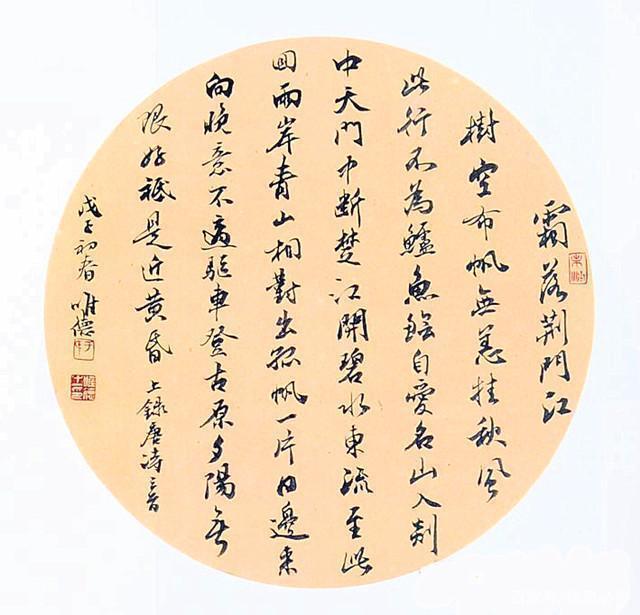 霜落荆門江
樹空布帆無恙挂秋風
此行不為鱸魚鱠自愛名山入剡
中天門中斷楚江開碧水東流至此
回兩岸青山相對出孤帆一片日邊來
向晚意不適驅車登古原夕陽無
限好祗是近黄昏 上錄唐詩三首
戊子初春 唯德